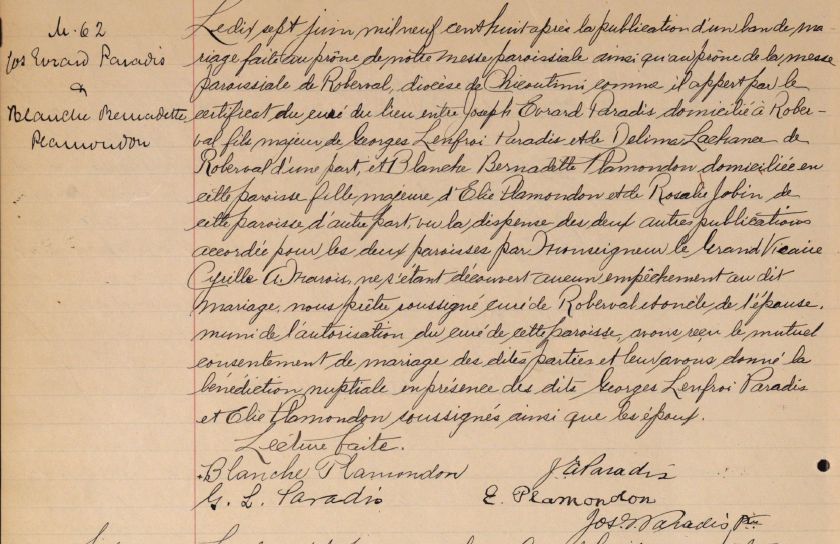 M. 62
Jos Evrard Paradis
&
Blanche Bernadette
Plamondon
Le dix sept juin mil neuf cent huit après la publication d'un ban de ma-
riage faite au prône de notre messe paroissiale ainsi qu'au prône de la messe
paroissiale de Roberval, diocèse de Chicoutimi comme il appert par le
certificat du curé du lieu entre Joseph Evrard Paradis domicilié à Rober-
val fils majeur de Georges Lenfroi Paradis et de Delima Lachance de
Roberval d'une part, et Blanche Bernadette Plamondon domiciliée en
cette paroisse fille majeure d'Elie Plamondon et de Rosalie Jobin de
cette paroisse d'autre part, vu la dispense des deux autres publications
accordée pour les deux paroisses par Monseigneur le Grand Vicaire
Cyrille A. Marois, ne s'étant découvert aucun empêchement au dit
mariage, nous prêtre soussigné curé de Roberval et oncle de l'épouse,
muni de l'autorisation du curé de cette paroisse, avons reçu le mutuel
consentement de mariage des dites parties et leur avons donné la
bénédiction nuptiale en présence des dits Georges Lenfroi Paradis
et Elie Plamondon soussignés ainsi que les époux.
Lecture faite.
Blanche Plamondon
Paradis
G. L. Paradis
E. Plamondon
Paradis Ptre